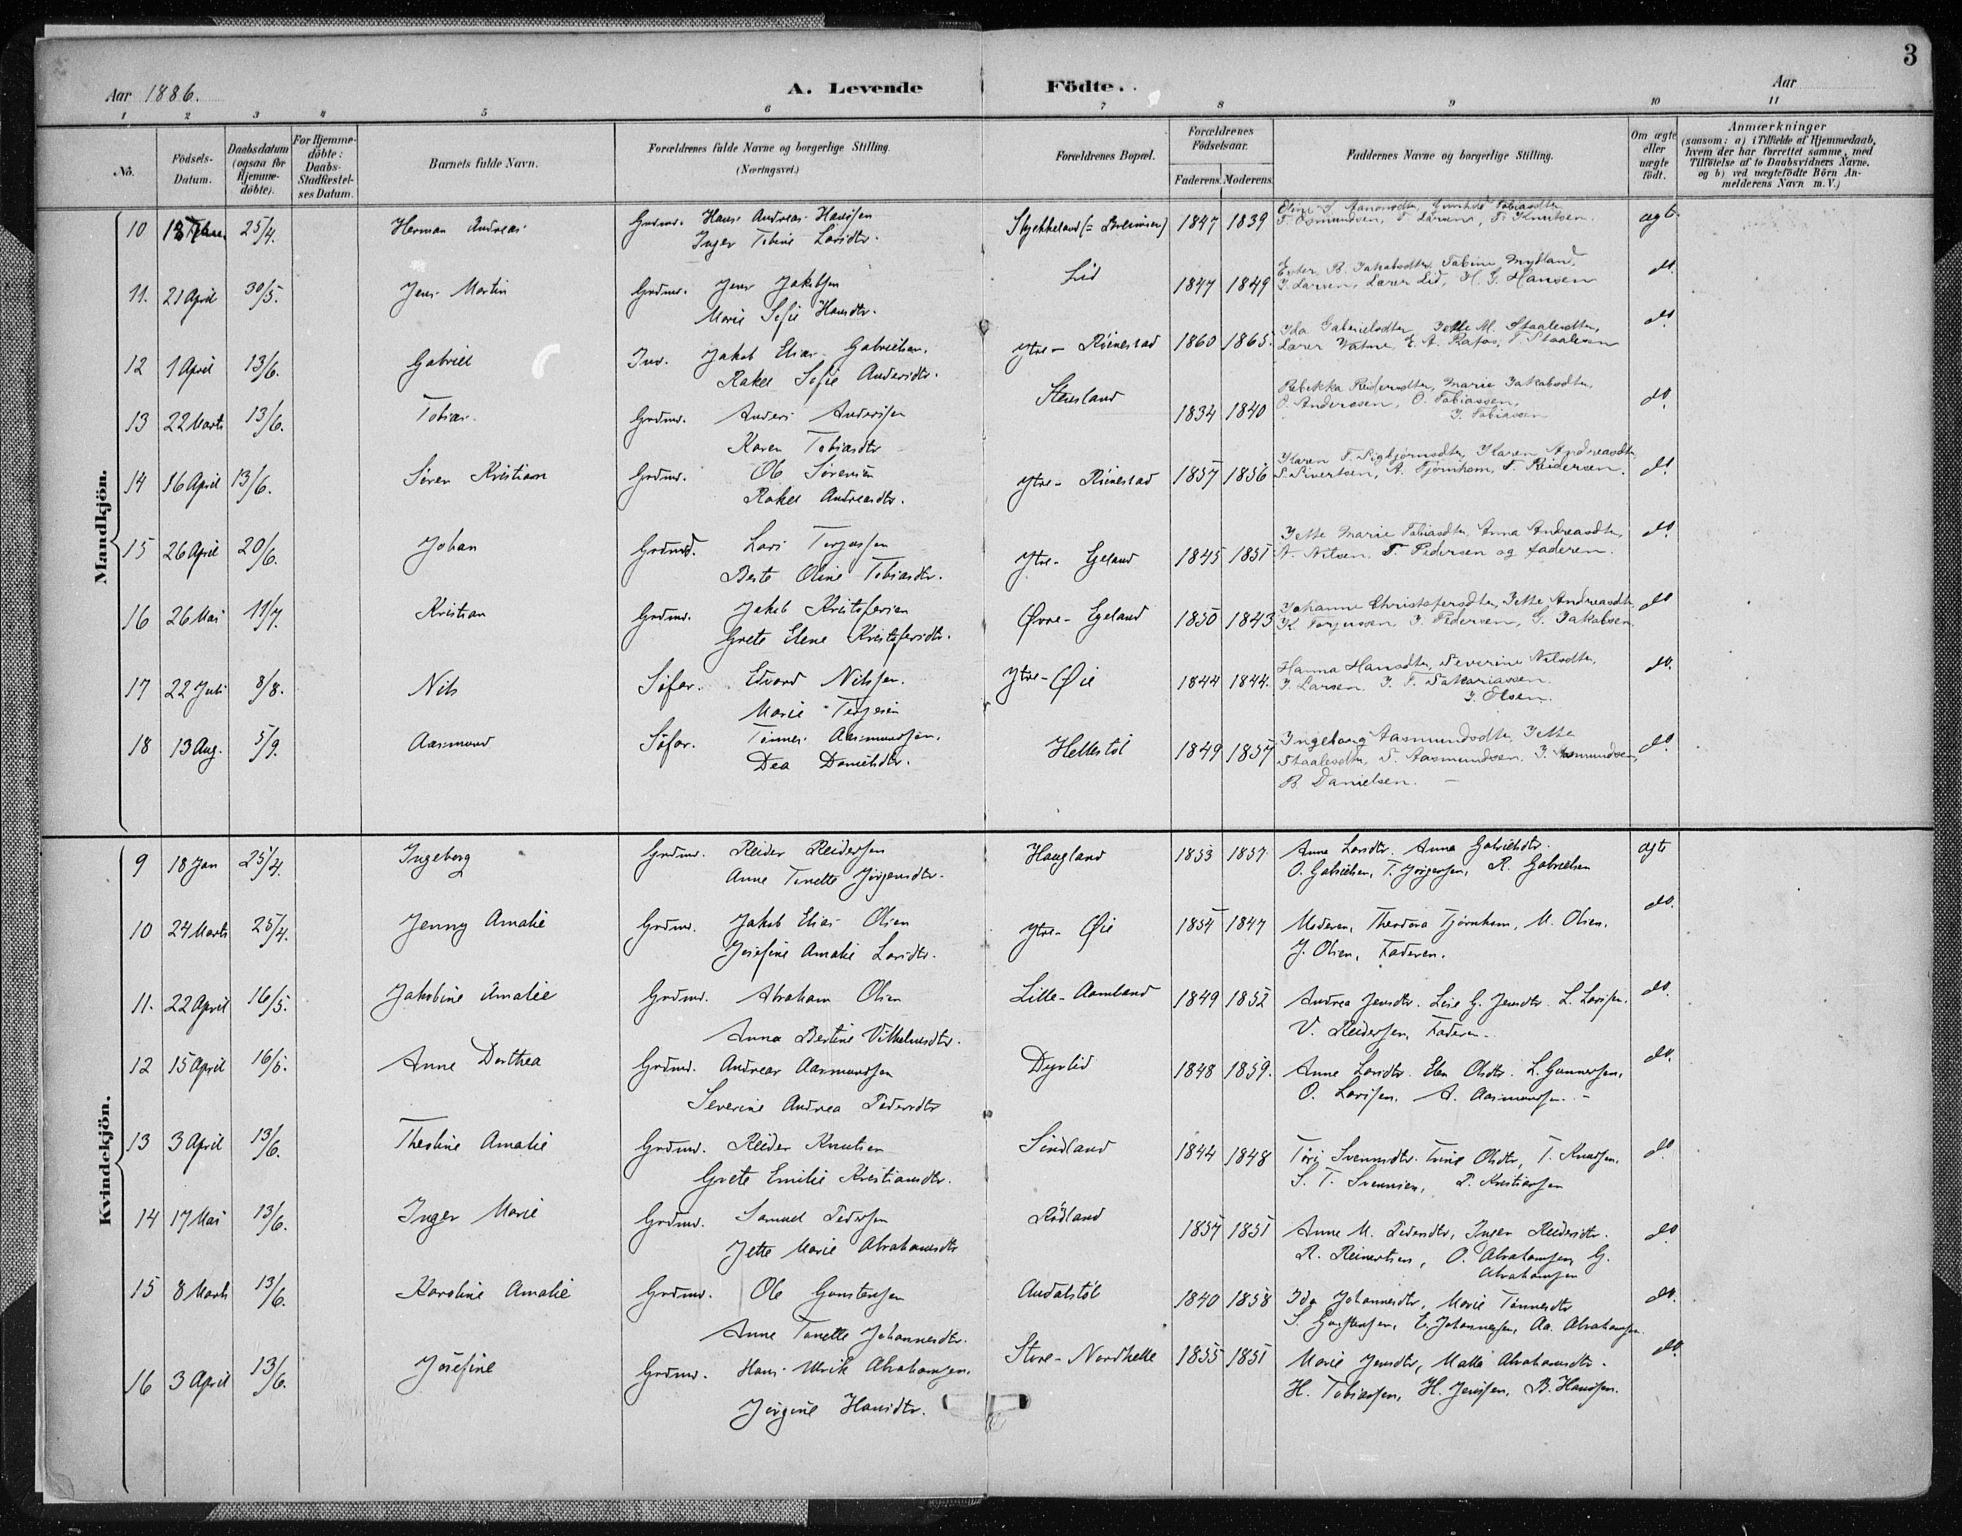 3
Aar 1886. A. Levende Födte. Aar
1 2 3 4 5 6 7 8 9 10 11
No. Födsels-Datum. Daabsdatum (ogsaa for Hjemme-döbte). For Hjemme-döbte: Daabs-Stadfæstel-ses Datum. Barnets fulde Navn. Forældrenes fulde Navne og borgerlige Stilling. (Næringsvei.) Forældrenes Bopæl. Forældrenes Födselsaar. Faderens. Moderens. Faddernes Navne og borgerlige Stilling. Om ægte eller uægte födt. Anmærkninger (saasom: a) i Tilfælde af Hjemmedaab, hvem der har forrettet samme, med Tilföielse af to Daabsvidners Navne. og b) ved uægtefödte Börn An-melderens Navn m. V.)
Mandkjön.
10 25/4. Herman Andreas Grdmd. Hans Andreas Hansen 1847 1839 Tobiasdtr,
Inger Tobine Larsdtr. T. Osmundsen, T. Larsen, T. Knutsen. ægte
11. 21 April 30/5. Jens Martin Grdmd. Jens Jakobsen Lid 1847 1849 Ester B. Jakobsdtr, Tobine Mydland, do.
Marie Sofie Hansdtr. J. Larsen, Lærer Lid, H. G. Hansen
12 1 April 13/6. Gabriel Ind. Jakob Elias Gabrielsen. Ytre- 1860 1865. Ida Gabrielsdtr, Jette M. Staalesdtr, do.
Rakel Sofie Andersdtr. Lærer Vatne, E. A. Rafos, T. Staalesen
13 22 Marts 13/6. Tobias. Grdmd. Anders Andersen Steksland 1834 1840 Rebekka Reidersdtr, Marie Jakobsdtr, do.
Karen Tobiasdtr O. Anderssen, O. Tobiassen,
J. Tobiassen
14 16 April 13/6. Søren Kristian Grdmd. Ole Sørensen Ytre- 1857 1856 Karen T. Sigbjørnsdtr, Karen Andreasdtr, do.
Rakel Andreasdtr. S. Sivertsen, A. Tjørnhom, T. Reidersen.
15 26 April 20/6. Johan Grdmd. Lars Terjesen Ytre- Egeland 1845 1851 Jette Marie Tobiasdtr, Anna Andreasdtr, do.
Berte Oline Tobiasdtr. N. Nilsen, T. Pedersen og Faderen.
16 26 Mai 11/7. Kristian Grdmd. Jakob Kristofersen Øvre- Egeland 1850 1843 Johanne Christofersdtr, Jette Andreasdtr, do
Grete Elene Kristofersdtr. K. Torjussen, J. Pedersen, G. Jakobsen
17 22 Juli 8/8. Nils Søfar. Edvard Nilssen. Ytre- Øie 1844 1844. Hanna Hansdtr, Severine Nilsdtr, do.
Marie Terjesen J. Larsen. J. T. Sakariassen.
J. Olsen.
18 13 Aug. 5/9. Aasmund Søfar. Tønnes Aasmundsen. Hellestøl 1849 1857 Ingeborg Aasmundsdtr, Jette do.
Dea Danielsdtr. Staalesdtr, S. Aasmundsen. J. Aasmundsen,
B. Danielsen. –
Kvindekjön.
9 18 Jan 25/4. Ingeborg Grdmd. Reider Reidersen Haugland 1853 1857 Anne Larsdtr. Anna Gabrielsdtr. ægte
Anne Tonette Jørgensdtr. O. Gabrielsen, T. Jørgensen, R. Gabrielsen
10 24 Marts 25/4. Jenny Amalie Grdmd. Jakob Elias Olsen Ytre- Øie 1854 1847 Moderen, Theodora Tjørnhom, M. Olsen. do.
Josefine Amalie Larsdtr. J. Olsen, Faderen.
11. 22 April 16/5. Jakobine Amalie Grdmd. Abraham Olsen Lille- Aamland 1849 1852 Andrea Jensdtr. Lise G. Jensdtr. L. Larsen. do.
Anna Bertine Vilhelmsdtr. V. Reidersen, Faderen. -
12 15 April 16/5. Anne Dorthea Grdmd. Andreas Aasmundsen Dyrlid 1848 1859. Anne Larsdtr. Elen Olsdtr. L. Gunnersen, do.
Severine Andrea Pedersdtr O. Larssen. A. Aasmundsen. -
13 3 April 13/6. Theoline Amalie Grdmd. Reider Knutsen Sindland 1844 1848 Tori Svennsdtr. Trine Olsdtr, T. Knudsen. do.
Grete Emilie Kristiansdtr. S. T. Svennsen, P. Kristiansen
14 17 Mai 13/6. Inger Marie Grdmd. Samuel Pedersen Rødland 1857 1851 Anne M. Pedersdtr, Inger Reidersdtr. do.
Jette Marie Abrahamsdtr R. Reinertsen, O. Abrahamsen, G.
Abrahamsen
15 8 Marts 13/6. Karoline Amalie Grdmd. Ole Gunstensen Audalstøl 1840 1858 Ida Johannesdtr, Marie Tønnesdtr do.
Anne Tonette Johannesdtr. S. Gunstensen, E. Johannessen, Aa. Abrahamsen.
16 3 April 13/6. Josefine Grdmd. Hans Ulrik Abrahamsen. Store- Nordhelle 1855 1851 Marie Jensdtr, Malla Abrahamsdtr. do.
Jørgine Hansdtr. H. Tobiassen, H. Jenssen, B. Hanssen.